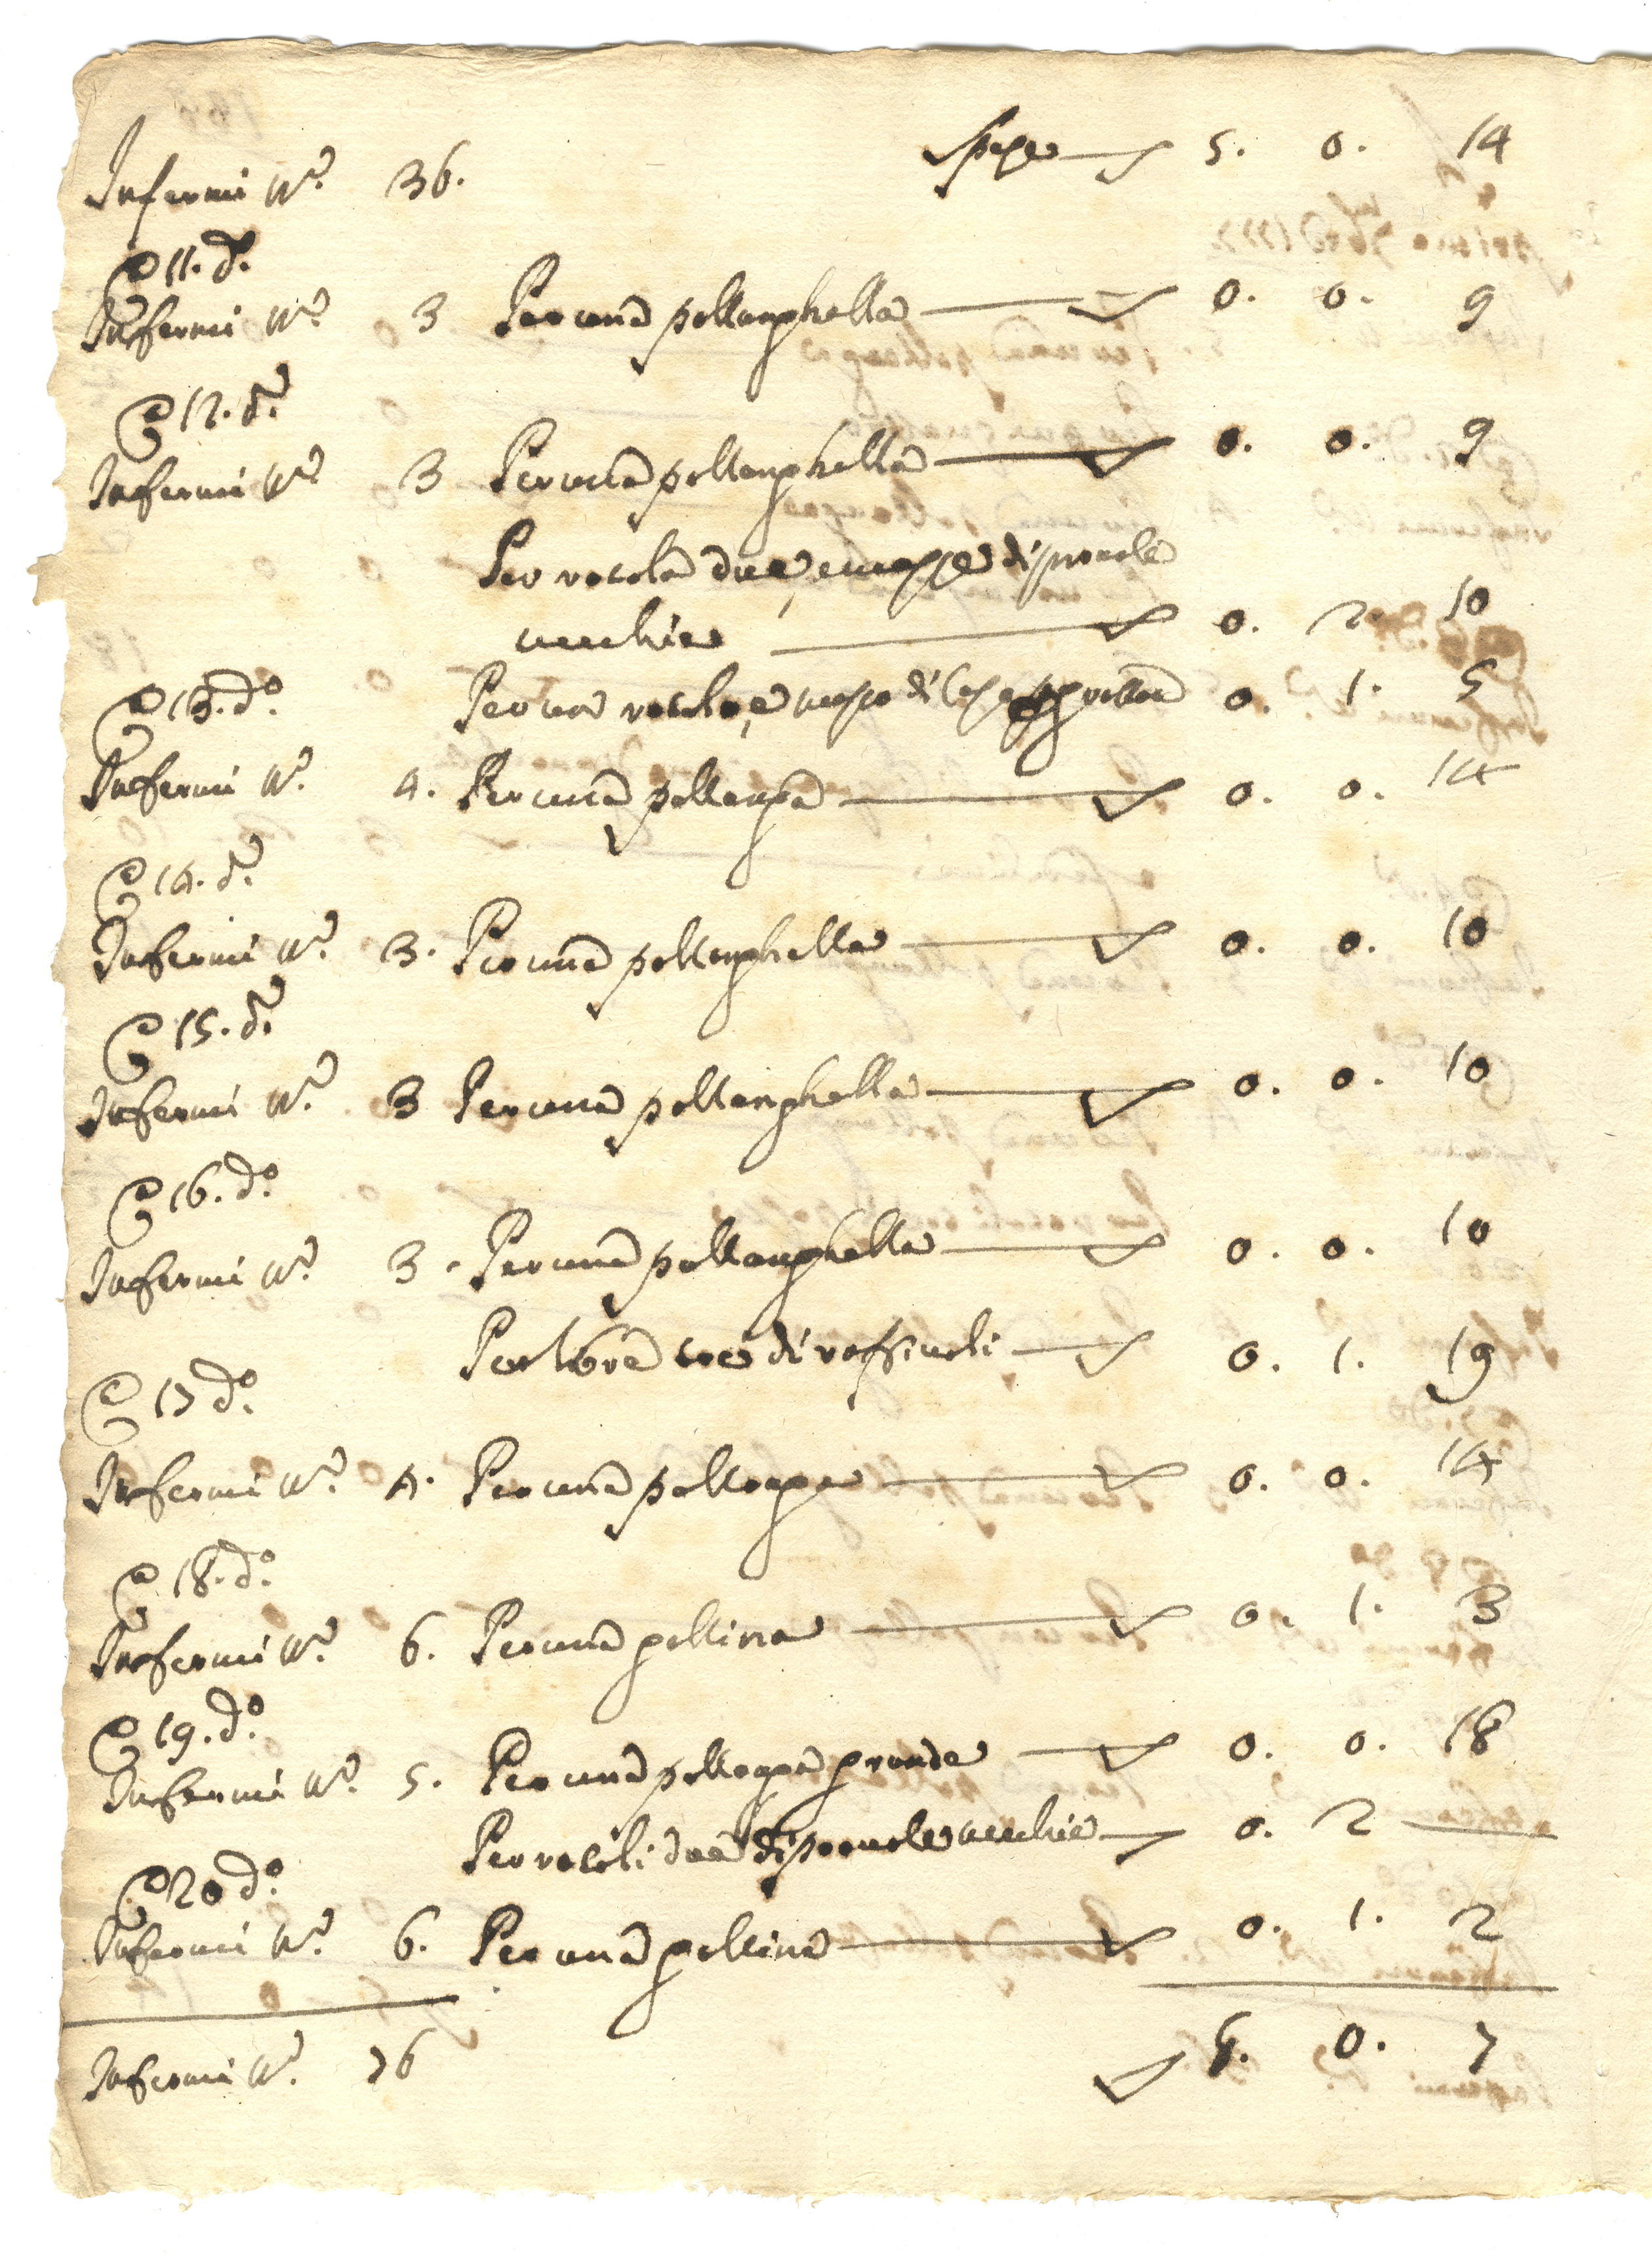 Infermi N.º 36. Spese 5. 0. 14
A 11. d.º
Infermi N.º 3 Per una pollanghella 0. 0. 9
A 12. d.º
Infermi N.º 3 Per una pollanghella 0. 0. 9
Per rotola due, e mezze di provole
vecchie 0. 2. 10
A 13. d.º Per un rotolo, e mezzo di 0. 1. 5
Infermi N.º 4. Per una pollanga 0. 0. 14
A 14. d.º
Infermi N.º 3. Per una pollanghella 0. 0. 10
A 15. d.º
Infermi N.º 3 Per una pollanghella 0. 0. 10
A 16. d.º
Infermi N.º 3. Per una pollanghella 0. 0. 10
Per libre tre di raffiuoli 0. 1. 19
A 17 d.º
Infermi N.º 4. Per una pollanga 0. 0. 14
A 18. d.º
Infermi N.º 6. Per una gallina 0. 1. 3
A 19. d.º
Infermi N.º 5. Per una pollanga grande 0. 0. 18
Per rotoli due di provole vecchie 0. 2
A 20 d.º
Infermi N.º 6. Per una gallina 0. 1. 2
Infermi N.º 76 0. 7